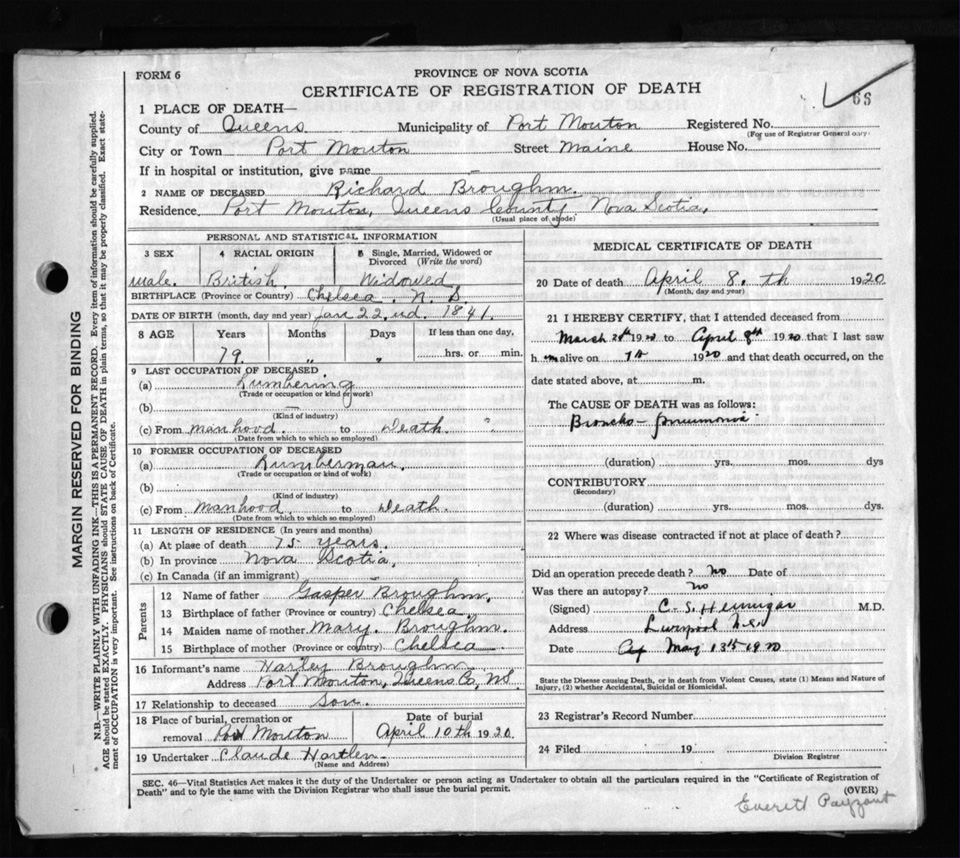 FORM 6
PROVINCE OF NOVA SCOTIA
CERTIFICATE OF REGISTRATION OF DEATH
68
1 PLACE OF DEATH—
County of Queens Municipality of Port Mouton Registered No.
(For use of Registrar General only)
City or Town Port Mouton Street Maine House No.
If in hospital or institution, give name –
2 NAME OF DECEASED Richard Broughm.
Residence Port Mouton, Queens County, Nova Scotia,
(Usual place of abode)
PERSONAL AND STATISTICAL INFORMATION
3 SEX 4 RACIAL ORIGIN 5 Single, Married, Widowed or Divorced (Write the word)
male. British. Widowed
BIRTHPLACE (Province or Country) Chelsea. N. S.
DATE OF BIRTH (month, day and year) Jan 22. nd. 1841.
8 AGE Years Months Days If less than one day,
79. " " hrs. or min.
9 LAST OCCUPATION OF DECEASED
(a) Lumbering
(Trade or occupation or kind of work)
(b) –
(Kind of industry)
(c) From manhood. to Death. "
(Date from which to which so employed)
10 FORMER OCCUPATION OF DECEASED
(a) Lumberman.
(Trade or occupation or kind of work)
(b)
(Kind of industry)
(c) From manhood to Death.
(Date from which to which so employed)
11 LENGTH OF RESIDENCE (In years and months)
(a) At place of death 75 years.
(b) In province Nova Scotia,
(c) In Canada (if an immigrant) –
Parents
12 Name of father Gasper Broughm.
13 Birthplace of father (Province or country) Chelsea
14 Maiden name of mother Mary. Broughm.
15 Birthplace of mother (Province or country) Chelsea
16 Informant's name Harley Broughm
Address Port Mouton, Queens Co, NS.
17 Relationship to deceased Son.
18 Place of burial, cremation or removal Port Mouton
Date of burial April 10th 1920.
19 Undertaker Claude Hartlen.
(Name and Address)
MEDICAL CERTIFICATE OF DEATH
20 Date of death April 8. th 1920
(Month, day and year)
21 I HEREBY CERTIFY, that I attended deceased from
March 1920 to April 8th 1920 that I last saw
him alive on 7th 1920 and that death occurred, on the
date stated above, at m.
The CAUSE OF DEATH was as follows:
Broncho-pneumonia
(duration) yrs. mos. dys
CONTRIBUTORY
(Secondary)
(duration) yrs. mos. dys.
22 Where was disease contracted if not at place of death?
Did an operation precede death? No Date of
Was there an autopsy? no
(Signed) C. S. Hennigar M.D.
Address Liverpool N.S.
Date May 13th 1920
State the Disease causing Death, or in death from Violent Causes, state (1) Means and Nature of Injury, (2) whether Accidental, Suicidal or Homicidal.
23 Registrar's Record Number
24 Filed 19
Division Registrar
SEC. 46—Vital Statistics Act makes it the duty of the Undertaker or person acting as Undertaker to obtain all the particulars required in the "Certificate of Registration of
Death" and to fyle the same with the Division Registrar who shall issue the burial permit.
(OVER)
Everett Payzant
MARGIN RESERVED FOR BINDING
N.B.—WRITE PLAINLY WITH UNFADING INK—THIS IS A PERMANENT RECORD. Every item of information should be carefully supplied.
AGE should be stated EXACTLY. PHYSICIANS should STATE CAUSE OF DEATH in plain terms, so that it may be properly classified. Exact statement of OCCUPATION is very important. See instructions on back of Certificate.